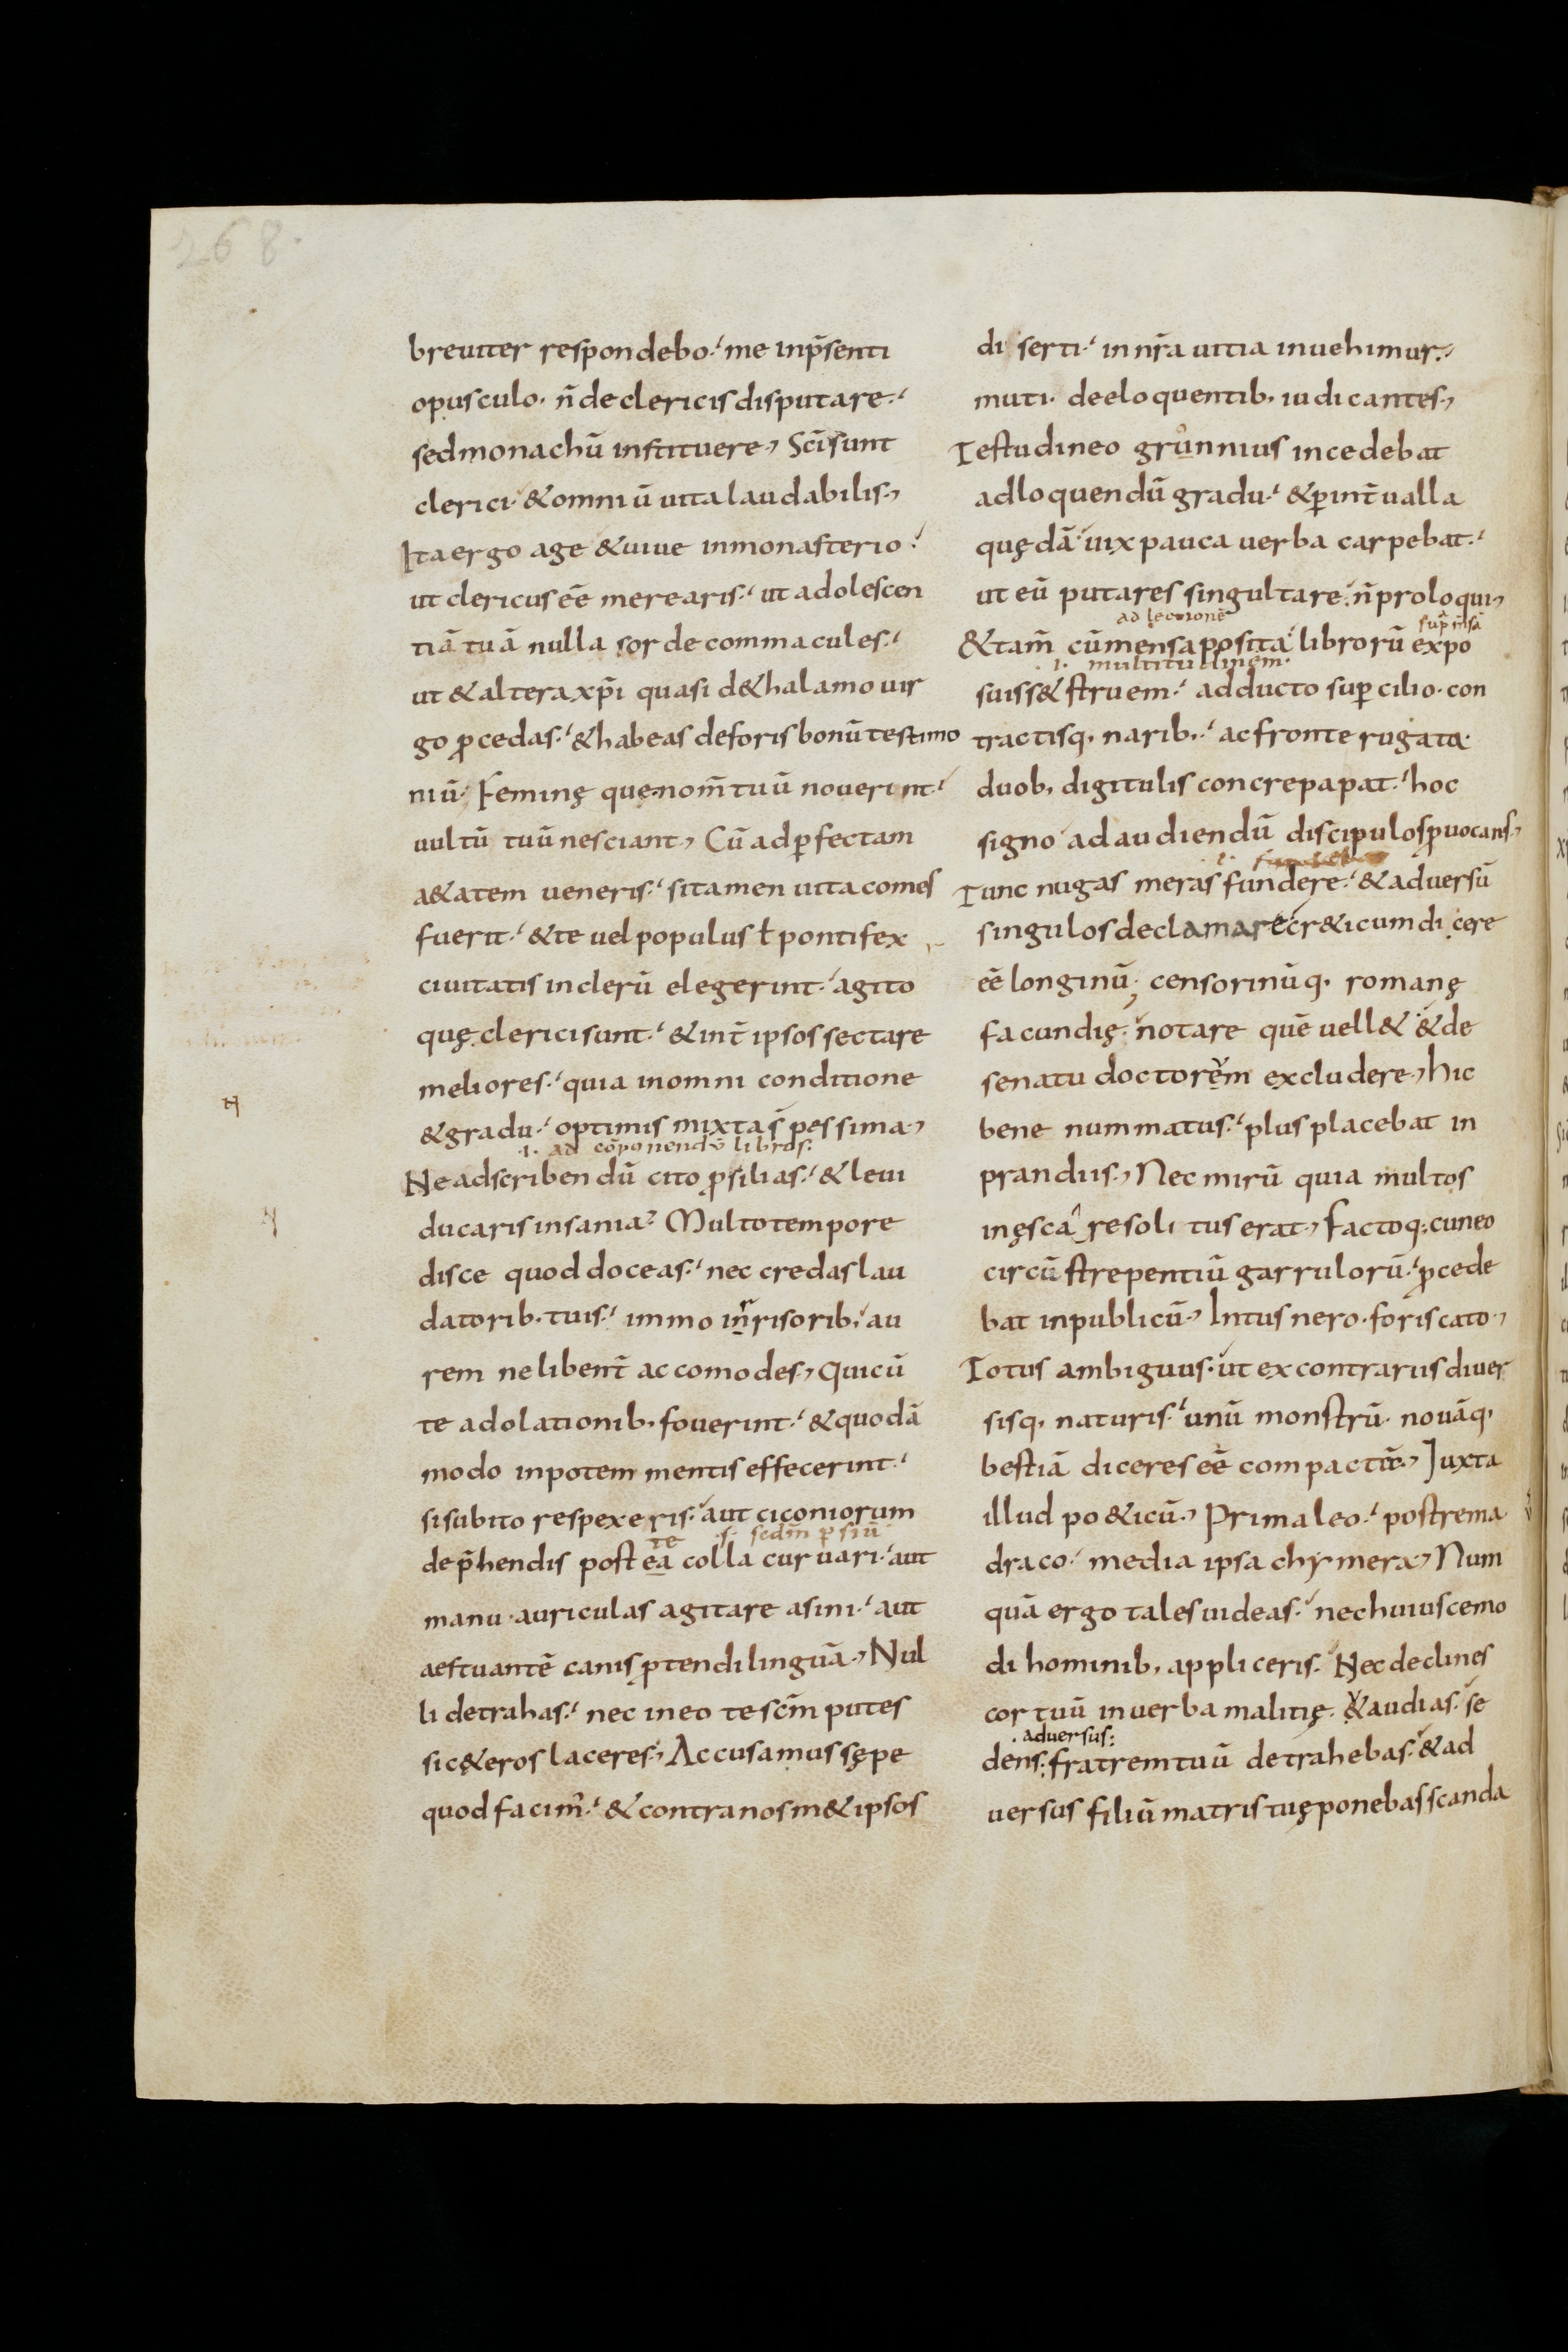 268.
breuiter respondebo.' me inp̄senti
opusculo. n̄ declericis disputare.'
sedmonachū instituere, Sc̄i sunt
clerici. & omniū uita laudabilis,
Ita ergo age & uiue inmonasterio.'
ut clericus eē merearis.' ut adolescen
tiā tuā nulla sorde commacules.'
ut & altera xp̄i quasi d&halamo uir
go ꝓcedas.' & habeas deforis bonū testimo
niū. Feminę quę nom̄ tuū nouerint.'
uultū tuū nesciant, Cū adꝑfectam
a&atem ueneris.' sitamen uitacomes
fuerit.' & te uel populus ł pontifex
ciuitatis inclerū elegerint.' agito
quę clerici sunt.' & int̄ ipsos sectare
meliores.' quia inomni conditione
& gradu.' optimis mixta s̄ pessima,
.i. ad cōponendū libros:
Ne adscribendū cito ꝓsilias.' & leui
ducaris insania? Multotempore
disce quod doceas.' nec credas lau
datorib. tuis.' immo inrisorib,' au
rem ne libent̄ accomodes, Quicū
te adolationib. fouerint.' & quodā
modo inpotem mentis effecerint.'
si subito respexeris.' aut ciconiorum
te .s. sedm̄
dep̄hendis post ea colla curuari.' aut
manu. auriculas agitare asini.' aut
aestuantē canis ꝓtendi linguā, Nul
li detrahas.' nec ineo te sc̄m putes
sic&eros laceres, Accusamus sępe
quod facim̄.' & contra nosm&ipsos
diserti.' in nr̄a uitia inuehimur.,
muti. deeloquentib, iudicantes,
Testudineo grunnius incedebat
adloquendū gradu.' & ꝑint̄ualla
quędā.' uix pauca uerba carpebat.'
ut eū putares singultare.' n̄ proloqui,
ad lectionē sup̄ m̄sā
& tam̄ cūmensa posita.' librorū expo
.i. multitudinem.
suiss& struem.' adducto suꝑcilio. con
tractisq, narib,.' ac fronte rugata.
duob, digitulis concrepapat.' hoc
signo ad audiendū discipulos ꝓuocans,
Tunc nugas meras fundere.' & aduersū
singulos declamare cr&icum dicere
eē longinū; censorinūq, romanę
facundię.' notare quē uell& & de
senatu doctorem excludere, hic
bene nummatus.' plus placebat in
prandiis, Nec mirū quia multos
inęscare solitus erat, factoq; cuneo
circū strepentiū garrulorū.' ꝓcede
bat inpublicū, Intus nero. foris cato,
Totus ambiguus. ut ex contrariis diuer
sisq, naturis.' unū monstrū. nouāq,
bestiā diceres eē compactē, Juxta
illud po&icū, Prima leo.' postrema
draco.' media ipsa chymera, Num
quā ergo tales uideas.' nec huiuscemo
di hominib, appliceris.' Nec declines
cor tuū inuerba malitię. & audias.' se
.aduersus:
dens: fratrem tuū detrahebas.' & ad
uersus filiū matris tuę ponebas scanda